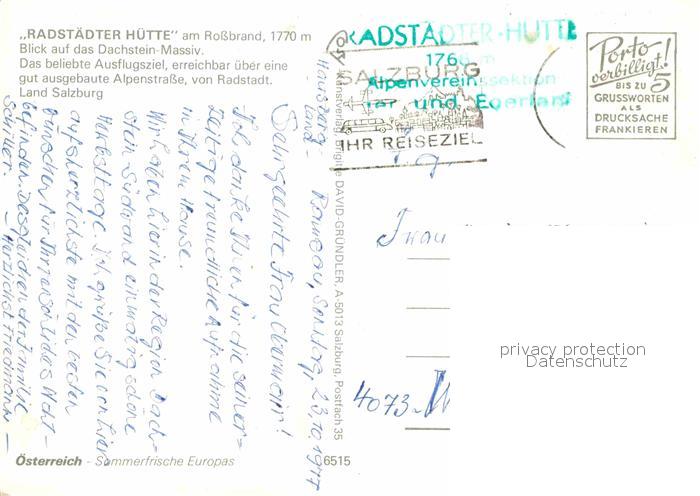 „RADSTÄDTER HÜTTE" am Roßbrand, 1770 m
Blick auf das Dachstein-Massiv.
Das beliebte Ausflugsziel, erreichbar über eine
gut ausgebaute Alpenstraße, von Radstadt.
Land Salzburg
RADSTÄDTER-HÜTTE
1768 m
Alpenvereinssektion
und Egerland
SALZBURG
IHR REISEZIEL
Porto
verbilligt!
BIS ZU 5
GRUSSWORTEN
ALS
DRUCKSACHE
FRANKIEREN
Ramsau, Sonntag, 23.10.1977
Sehr geehrte Frau
Ich danke Ihnen für die seiner=
zeitige freundliche Aufnahme
in Ihrem Hause.
Wir haben hier in der Region Dach-
stein Südwand einmalig schöne
Herbsttage. Ich grüße Sie von hier
aufs herzlichste mit den besten
Wünschen für Ihr persönliches Wohl-
befinden. Desgleichen der Familie
Herzlichst Friedmann
Kunstverlag Brigitte DAVID-GRÜNDLER, A-5013 Salzburg, Postfach 35
Frau
4073
privacy protection
Datenschutz
Österreich - Sommerfrische Europas
6515